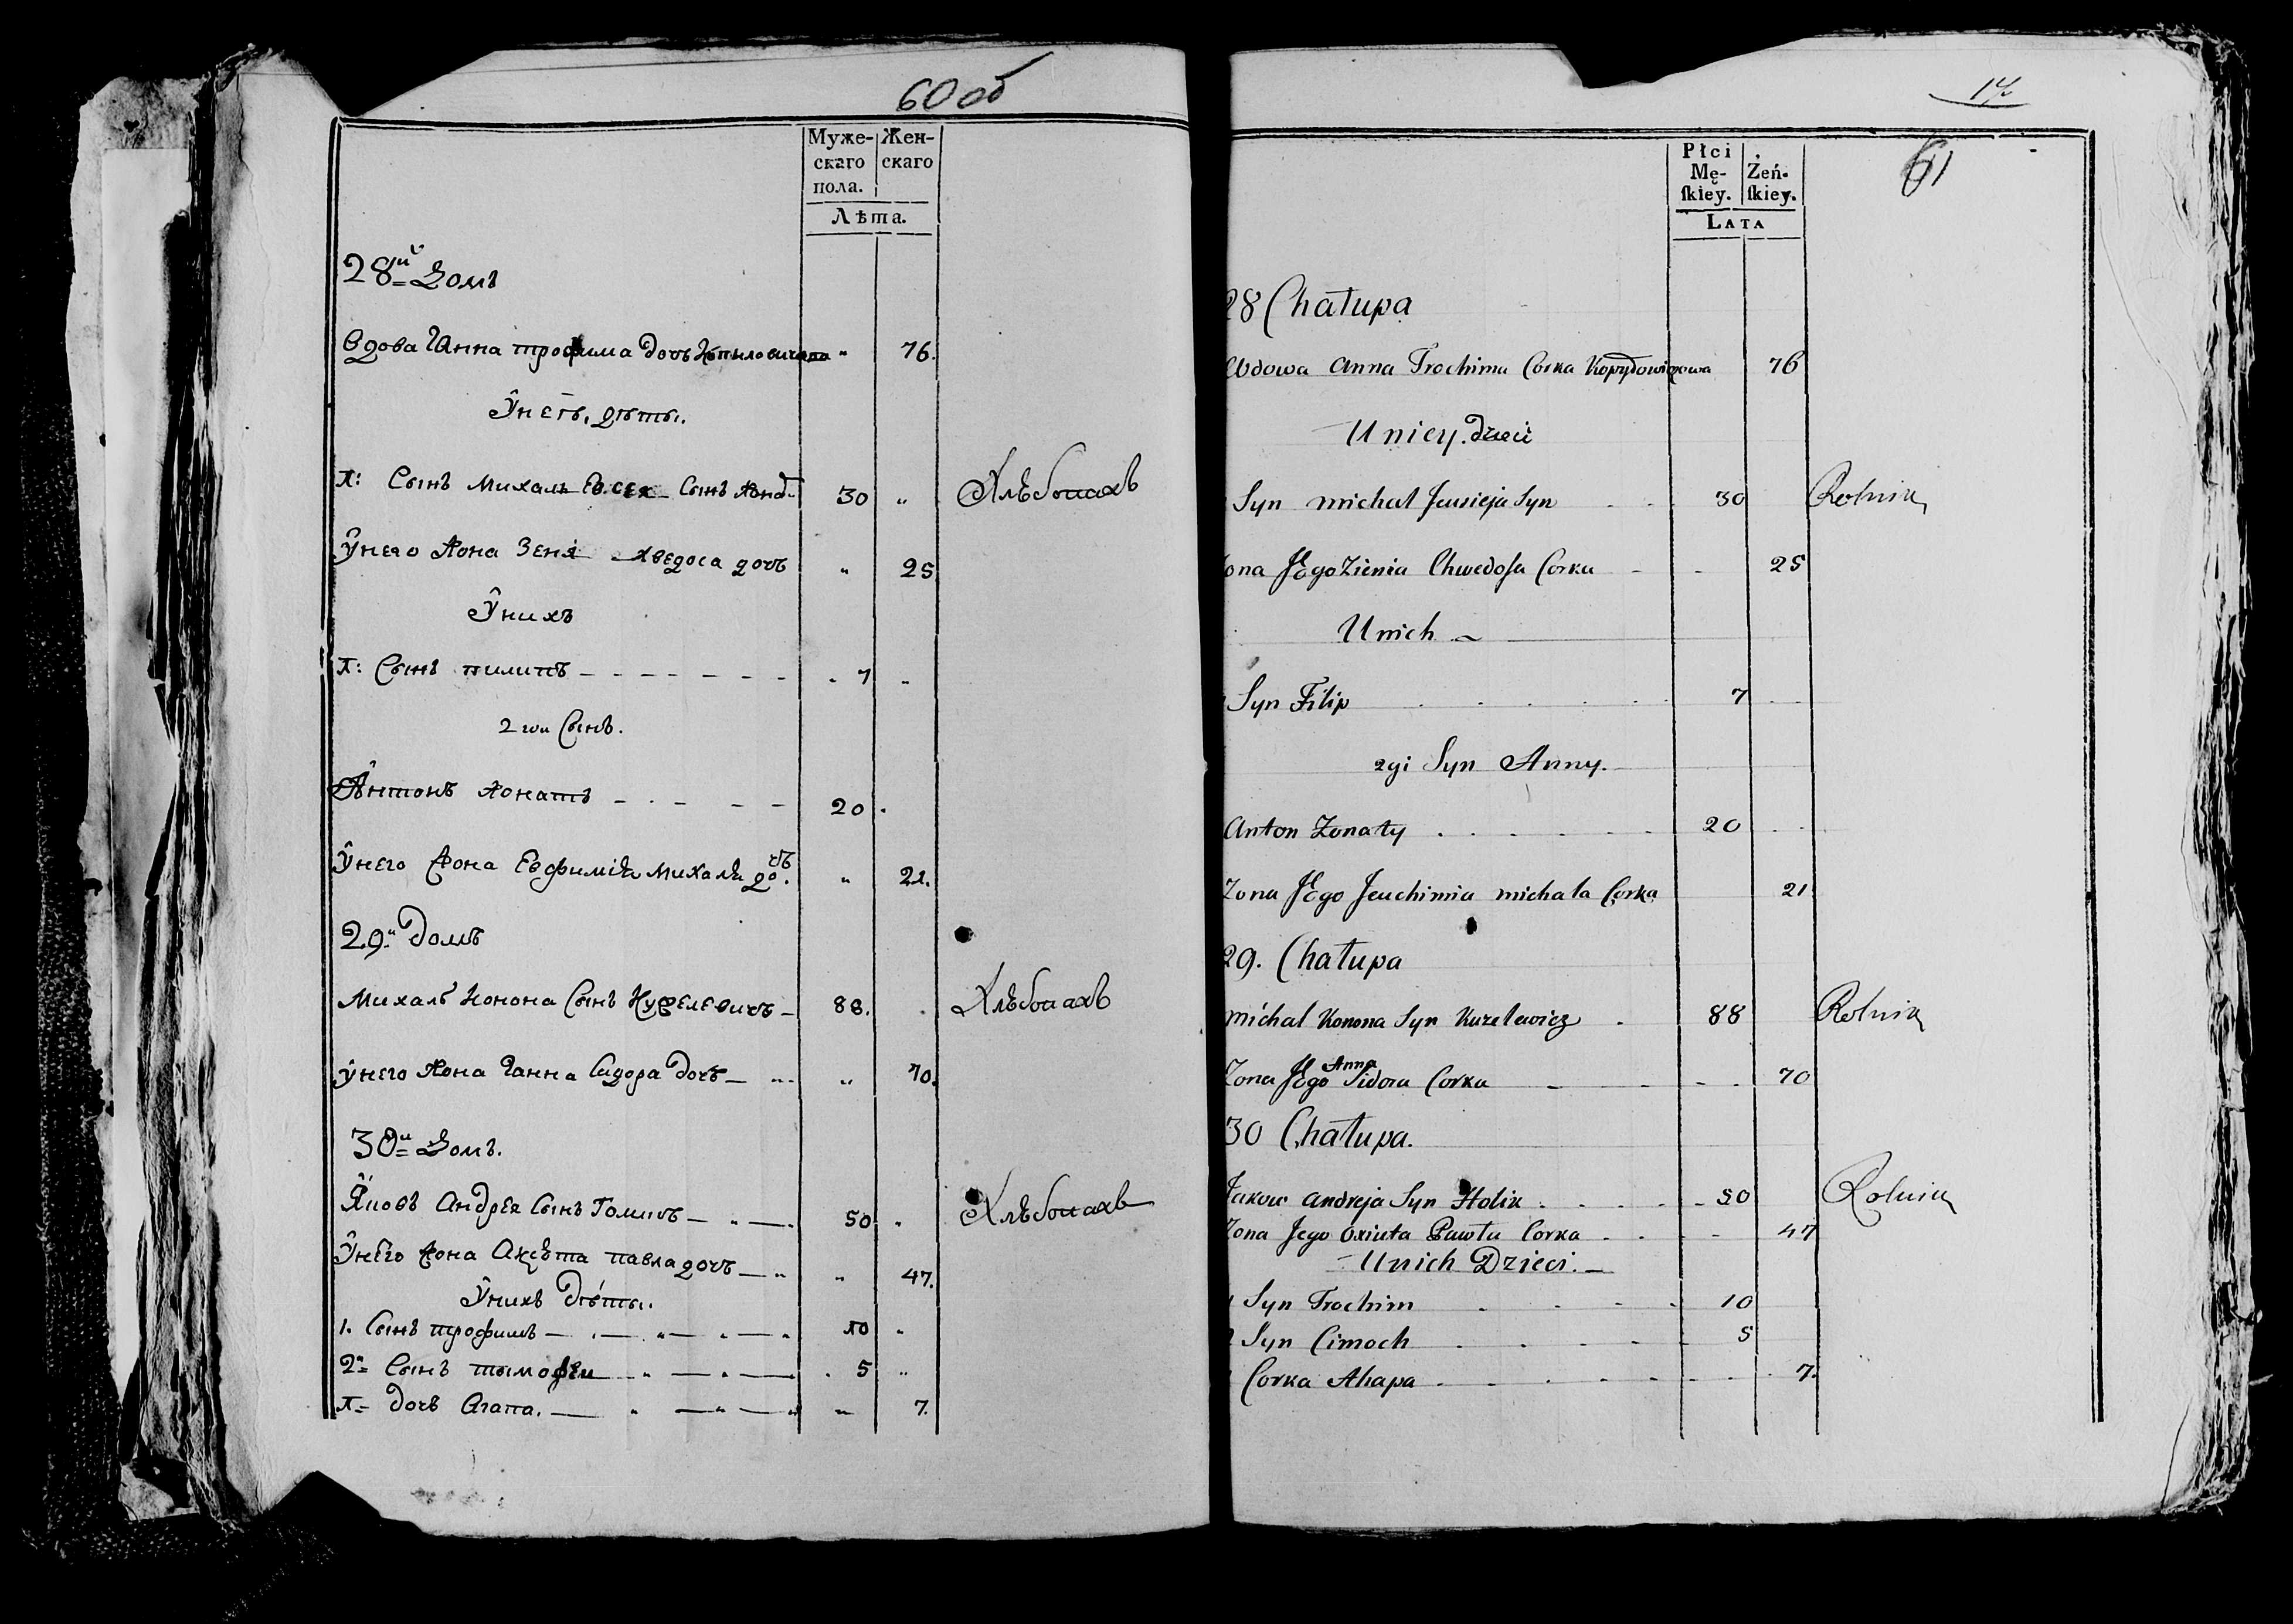 60 об
Муже- Жен-
скаго скаго
пола.
Лѣта.
28й Домъ
Вдова Ганна трофима дочъ Копыловичова " 76.
Унеѣ, дѣты.
1: Сынъ Михалъ Евсея Сынъ 30 " Хлѣбопахъ
Унего Жона Зенія хведоса дочъ " 25
Унихъ
1: Сынъ пилипъ 7 "
2 гии Сынъ.
Антонъ Жонатъ 20
Унего Жона Евфимія Михала дочъ. " 21.
29й домъ
Михалъ Конона Сынъ Кузелевичъ 88. Хлѣбопахъ
унего Жона Ганна Сидора дочъ " 70.
30й Домъ.
Яковъ Андрея Сынъ Голикъ 50 " Хлѣбопахъ
Унего Жона Аксюта павла дочъ " 47.
Унихъ Дѣты.
1. Сынъ трофимъ 10 "
2й Сынъ тымофеи 5 "
1 дочъ Агапа. " 7.
17.
61
Płci
Mę- Żeń-
ſkiey. ſkiey.
Lata
28 Chałupa
Wdowa Anna Trochima Corka Kopyłowiczowa 76
Uniey. dzieci
Syn michał Jeusieja Syn 30 Rolnik
Zona Jego Zienia Chwedosa Corka 25
Unich
Syn Filip 7
2gi Syn Anny.
Anton Zonaty 20
Zona Jego Jeuchimia michała Corka 21
29. Chałupa
michał Konona Syn Kuzelewicz 88 Rolnik
Zona Jego Anna Sidora Corka 70
30 Chałupa.
Jakow andreja Syn Holik 50 Rolnik
Zona Jego Oxiuta Pawła Corka 47
Unich Dzieci.
1 Syn Trochim 10
2 Syn Cimoch 5
Corka Ahapa 7.